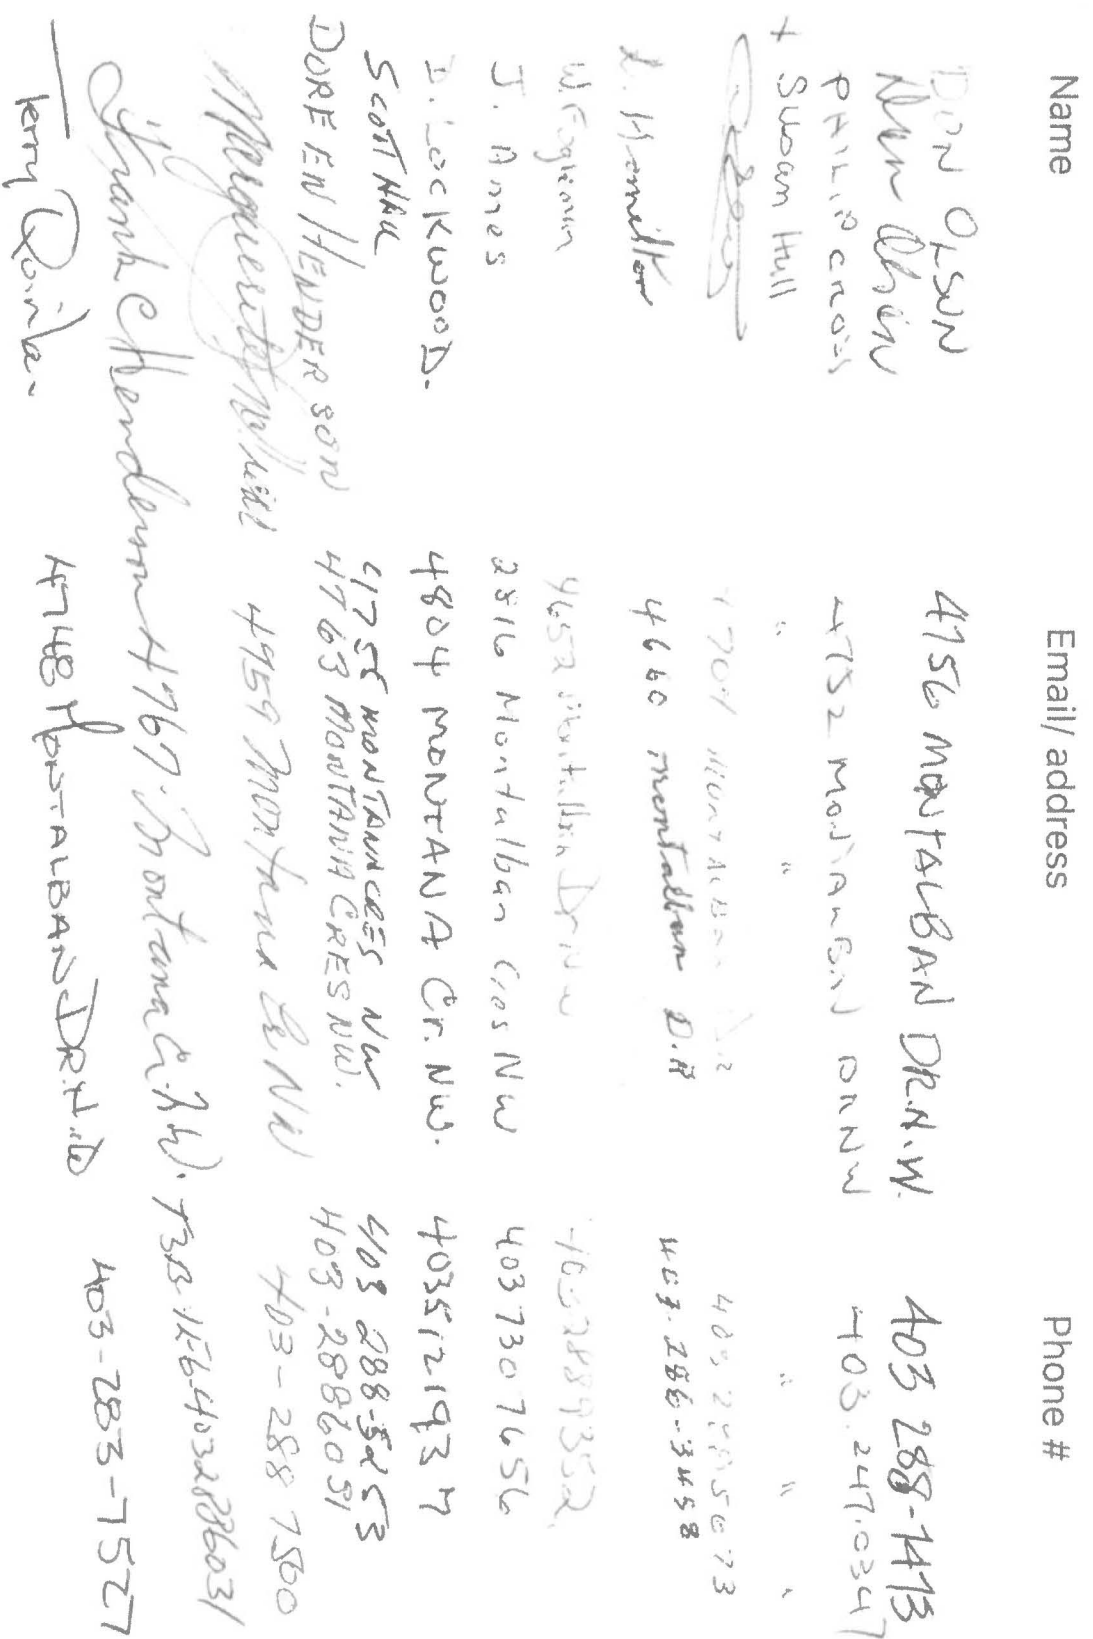 Name Email/ address Phone #
DON OLSON
4756 MONTALBAN DR.N.W. 403 288-1413
PHILIP CROSS 4732 MONTALBAN DR NW 403.247.0347
+ Susan Hull " " " " "
L. Hamilton 4660 montalban D.R 403-286-3458
W. Fogleman 4652 Montalban Dr NW 4032889352
J. Annes 2816 Montalban Cres NW 4037307656
D. LOCKWOOD. 4804 MONTANA Cr. NW. 403512193 7
SCOTT HALL 4755 MONTANA CRES NW 403 288-5253
DOREEN HENDERSON 4763 MONTANA CRES NW. 403-2886031
Marguerite 4759 Montana Cr NW 403-288 7560
Frank C Henderson 4767 Montana Cr. N.W. T3B-1E6-4032886031
Terry Quinlan 4748 MONTALBAN DR.N.W 403-283-7527